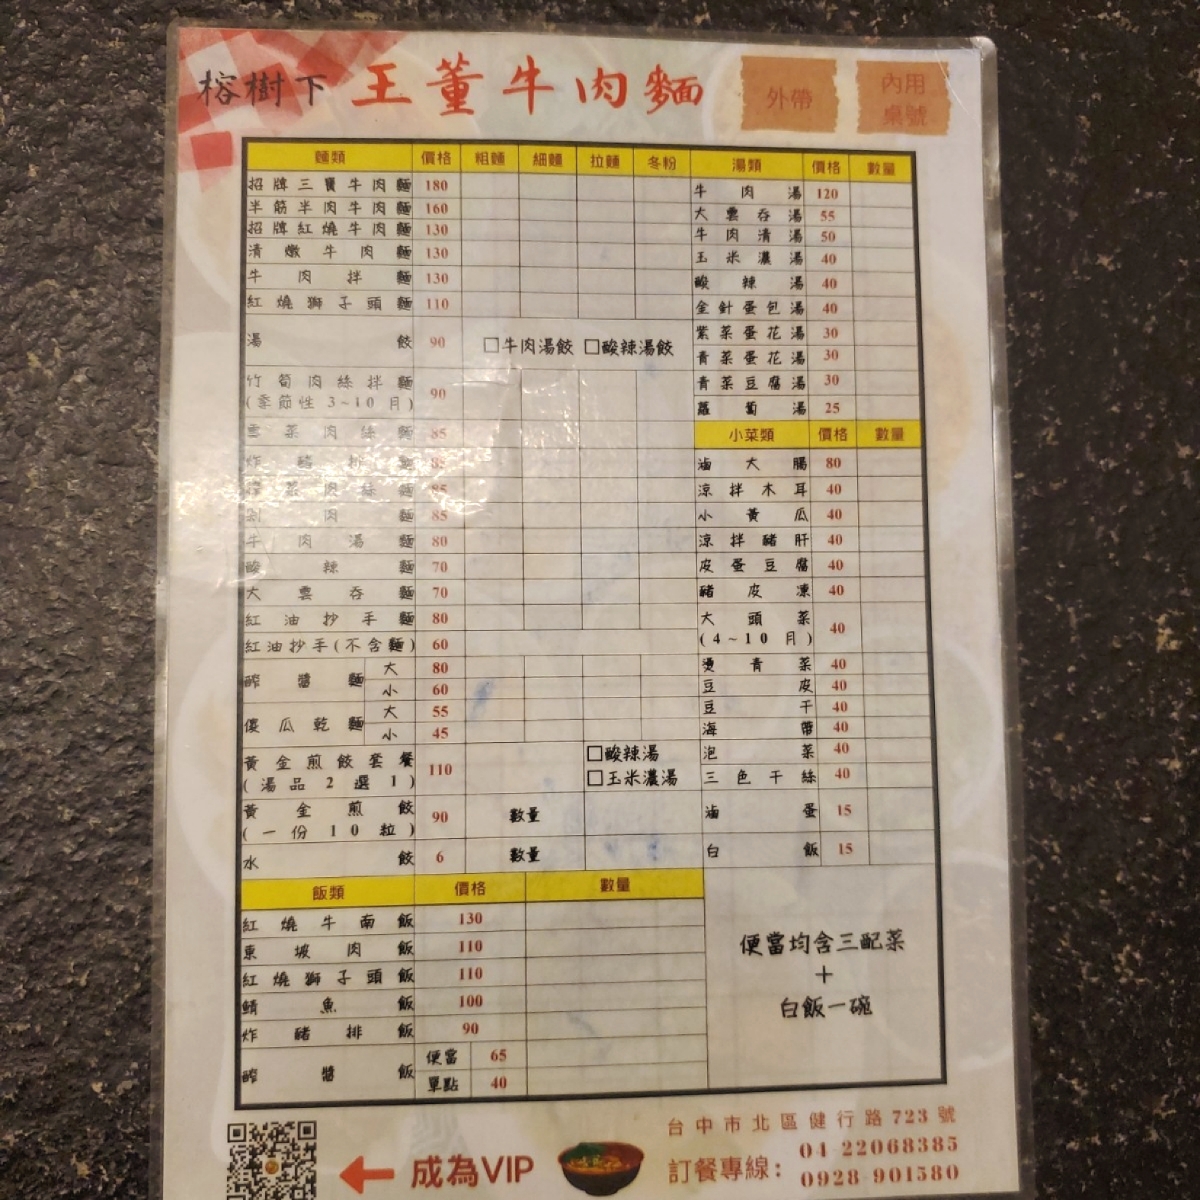 榕樹下 王董牛肉麵 外帶 內用桌號
麵類 價格 粗麵 細麵 拉麵 冬粉
招牌三寶牛肉麵 180
半筋半肉牛肉麵 160
招牌紅燒牛肉麵 130
清燉牛肉麵 130
牛肉拌麵 130
紅燒獅子頭麵 110
湯餃 90 □牛肉湯餃 □酸辣湯餃
竹筍肉絲拌麵 90
(季節性3~10月)
雪菜肉絲麵 85
炸豬排麵 85
榨菜肉絲麵 85
肉麵 85
牛肉湯麵 80
酸辣麵 70
大雲吞麵 70
紅油抄手麵 80
紅油抄手(不含麵) 60
醡醬麵 大 80
小 60
傻瓜乾麵 大 55
小 45
黃金煎餃套餐 110 □酸辣湯
(湯品2選1) □玉米濃湯
黃金煎餃 90 數量
(一份10粒)
水餃 6 數量
湯類 價格 數量
牛肉湯 120
大雲吞湯 55
牛肉清湯 50
玉米濃湯 40
酸辣湯 40
金針蛋包湯 40
紫菜蛋花湯 30
青菜蛋花湯 30
青菜豆腐湯 30
蘿蔔湯 25
小菜類 價格 數量
滷大腸 80
涼拌木耳 40
小黃瓜 40
涼拌豬肝 40
皮蛋豆腐 40
豬皮凍 40
大頭菜 40
(4~10月)
燙青菜 40
豆皮 40
豆干 40
海帶 40
泡菜 40
三色干絲 40
滷蛋 15
白飯 15
飯類 價格 數量
紅燒牛南飯 130
東坡肉飯 110
紅燒獅子頭飯 110
鯖魚飯 100
炸豬排飯 90
醡醬飯 便當 65
單點 40
便當均含三配菜
+
白飯一碗
成為VIP
台中市北區健行路723號
訂餐專線: 04-22068385
0928-901580